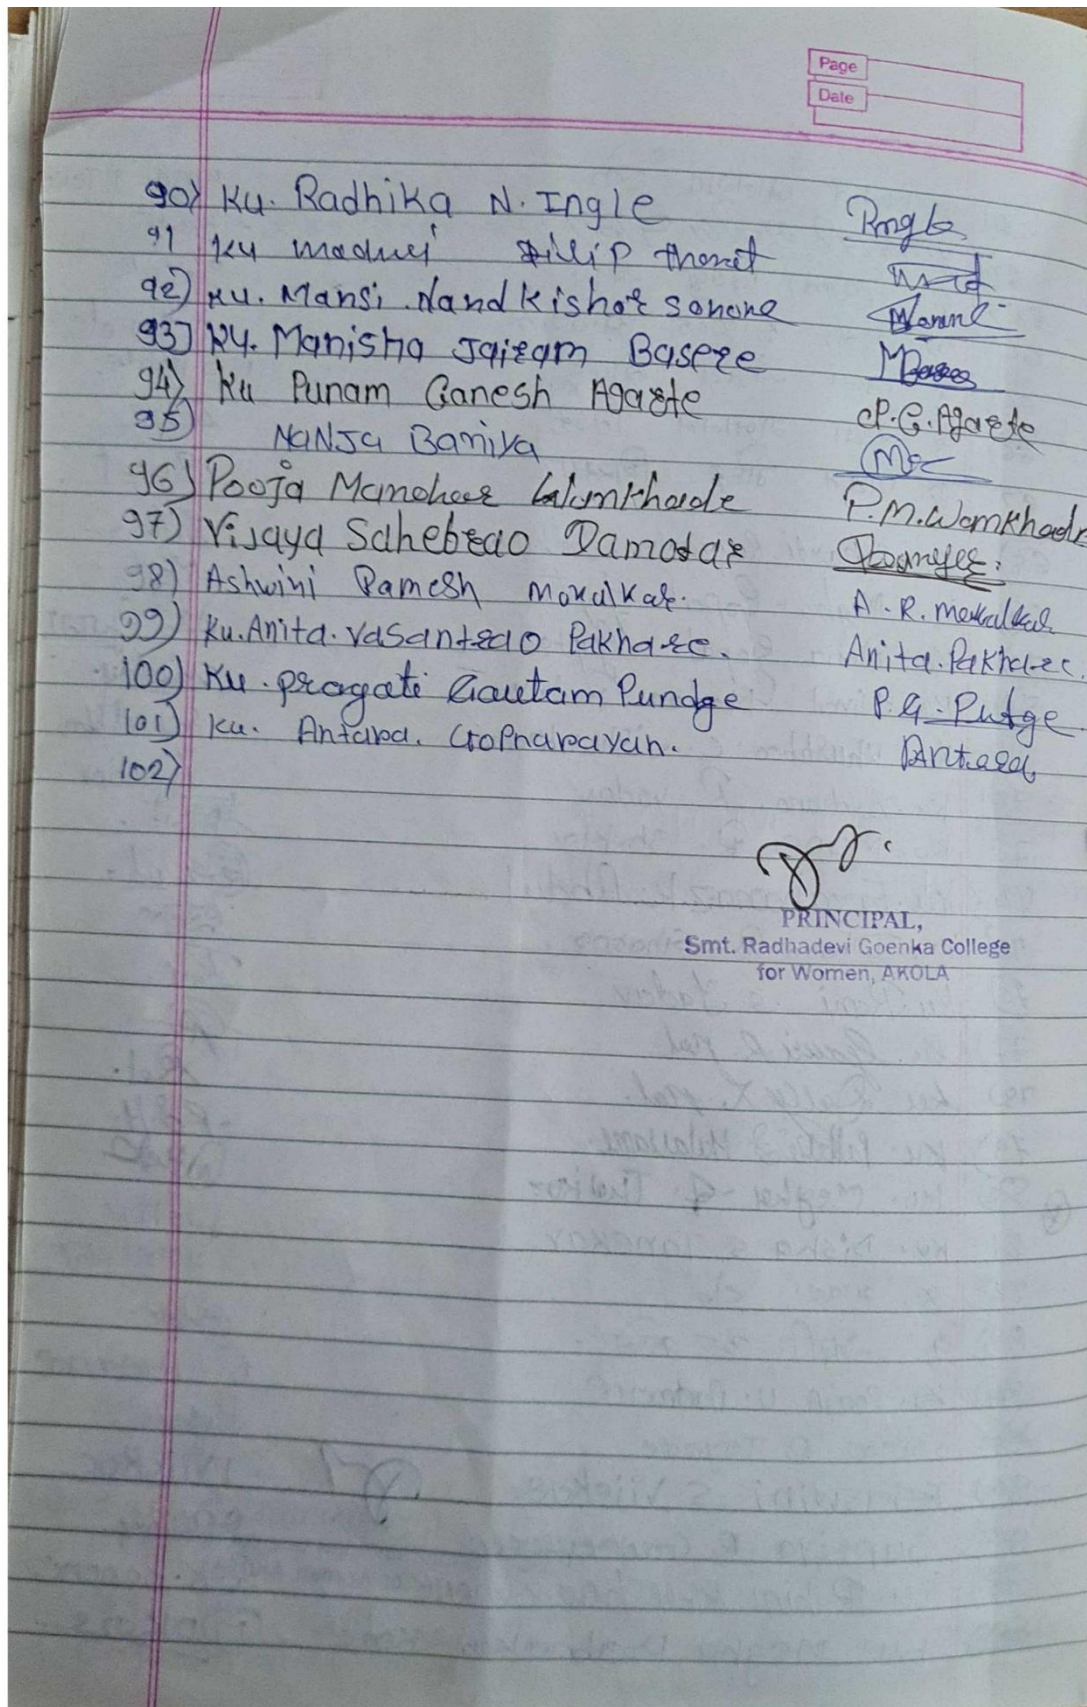 Page
Date
90) Ku. Radhika N. Ingle Rngle
91 Ku Dilip thorat
92) Ku. Mansi Nandkishor sonone
93) Ku. Manisha Jairam Basere
94) Ku Punam Ganesh Agarte P.G.Agarte
95) NaNJa Baniya
96) Pooja Manohar Wamkhade P.M.Wamkhade
97) Vijaya Sahebrao Damodar
98) Ashwini Ramesh Mokalkar. A.R.
99) Ku.Anita.vasantrao Pakhare. Anita.Pakhare.
100) Ku.pragati Gautam Pundge P.G.Putge
101) Ku. Antara. Gopnarayan. Antara
102)
PRINCIPAL,
Smt. Radhadevi Goenka College
for Women, AKOLA